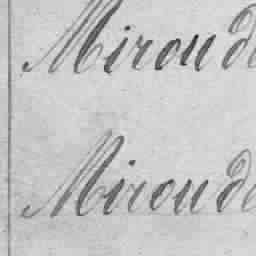 Mirou de
Mirou de